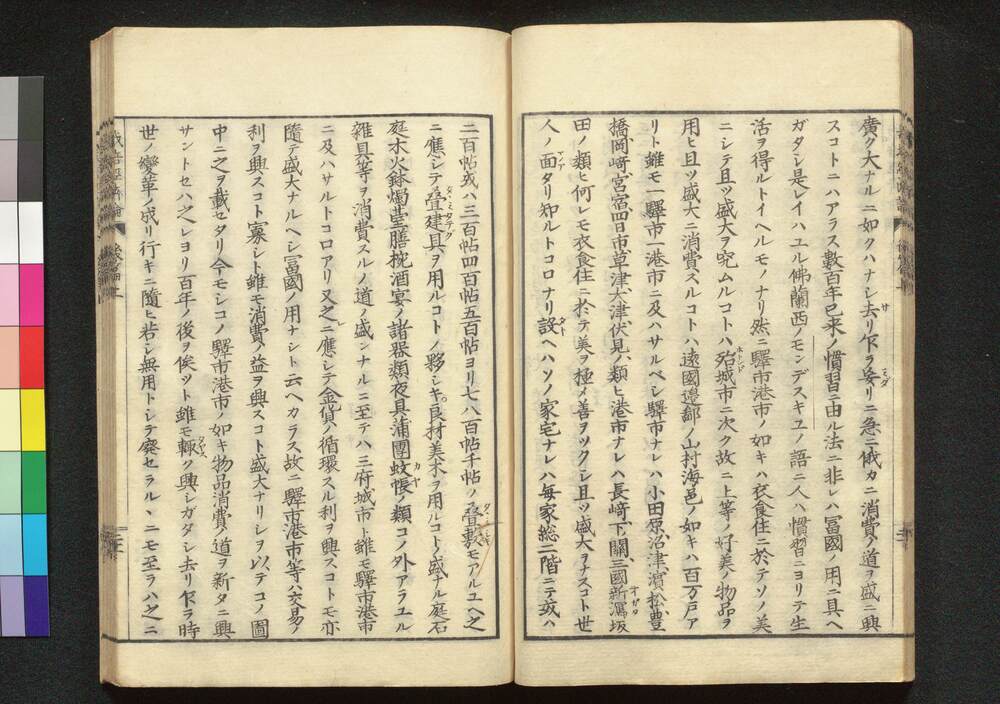 廣ク大ナルニ如クハナシ去リ乍ラ妄リニ急ニ俄カニ消費ノ道ヲ盛ニ興
スコトニハアラス數百年已来ノ慣習ニ由ル法ニ非レハ冨國ノ用ニ具ヘ
ガタシ是レイハユル佛蘭西ノモンデスキユノ語ニ人ハ慣習ニヨリテ生
活ヲ得ルトイヘルモノナリ然ニ驛市港市ノ如キハ衣食住ニ於テソノ美
ニシテ且ツ盛大ヲ究ムルコトハ殆城市ニ次ク故ニ上等ノ好美ノ物品ヲ
用ヒ且ツ盛大ニ消費スルコトハ遠國邊鄙ノ山村海邑ノ如キハ百万戸ア
リト雖モ一驛市一港市ニ及ハサルベシ驛市ナレハ小田原沼津濱松豊
橋岡﨑宮宿四日市草津大津伏見ノ類ヒ港市ナレハ長﨑下關三國新潟坂
田ノ類ヒ何レモ衣食住ニ於テ美ヲ極メ善ヲツクシ且ツ盛大ヲナスコト世
人ノ面タリ知ルトコロナリ設ヘハソノ家宅ナレハ毎家総二階ニテ或ハ
二百帖或ハ三百帖四百帖五百帖ヨリ七八百帖千帖ノ疊敷モアルユヘ之
ニ應シテ疊建具ヲ用ルコトノ夥シキ良材美木ヲ用ルコトノ盛ナル庭石
庭木火鉢燭臺膳椀酒宴ノ諸器類夜具蒲團蚊帳ノ類コノ外アラユル
雜具等ヲ消費スルノ道ノ盛ンナルニ至テハ三府城市ト雖モ驛市港市
ニ及ハサルトコロアリ又之ニ應シテ金貨ノ循環スル利ヲ興スコトモ亦
隨テ盛大ナルヘシ冨國ノ用ナシト云ヘカラス故ニ驛市港市等ハ交易ノ
利ヲ興スコト寡シト雖モ消費ノ益ヲ興スコト盛大ナリシヲ以テコノ圖
中ニ之ヲ載セタリ今モシコノ驛市港市ノ如キ物品消費ノ道ヲ新タニ興
サントセハ之レヨリ百年ノ後ヲ俟ツト雖モ輙ク興シガタシ去リ乍ラ時
世ノ變革ノ成リ行キニ隨ヒ若シ無用トシテ廃セラルヽニモ至ラハ之ニ